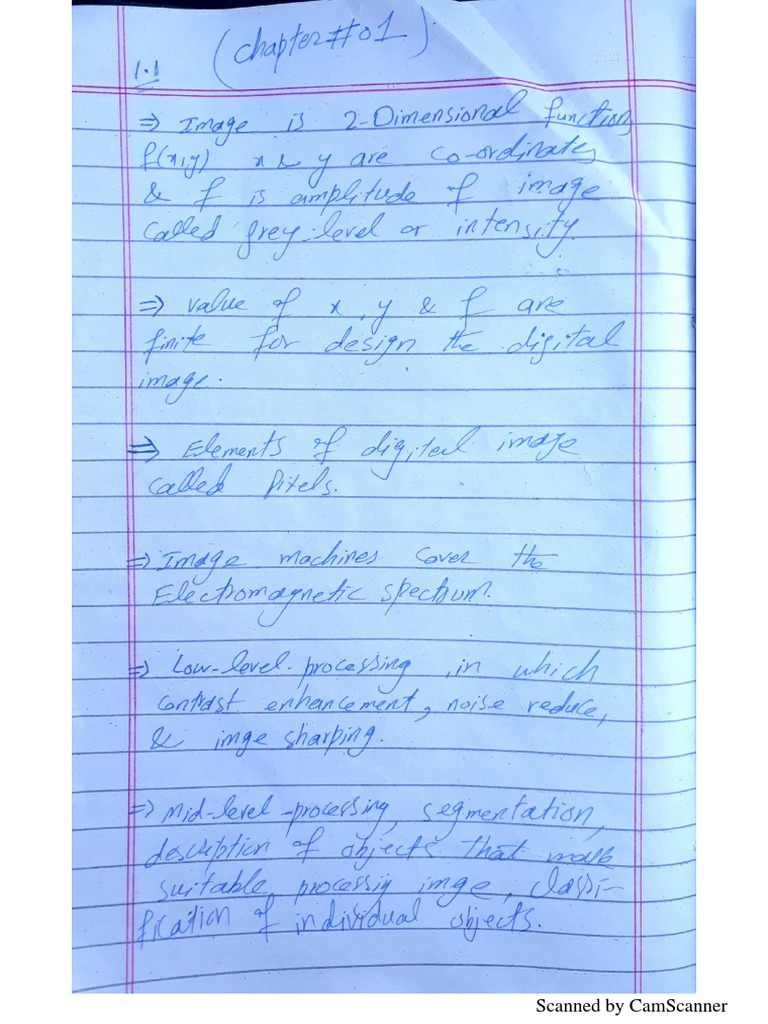 (Chapter#01)
1.1
⇒ Image is 2-Dimensional function,
f(x,y) x & y are co-ordinates
& f is amplitude of image
called grey-level or intensity.
⇒ value of x, y & f are
finite for design the digital
image.
⇒ Elements of digital image
called Pixels.
⇒ Image machines cover the
Electromagnetic spectrum.
⇒ Low-level-processing, in which
contrast enhancement, noise reduce,
& imge sharping.
⇒ Mid-level-processing, segmentation,
description of objects that make
suitable processing imge, classi-
fication of individual objects.
Scanned by CamScanner